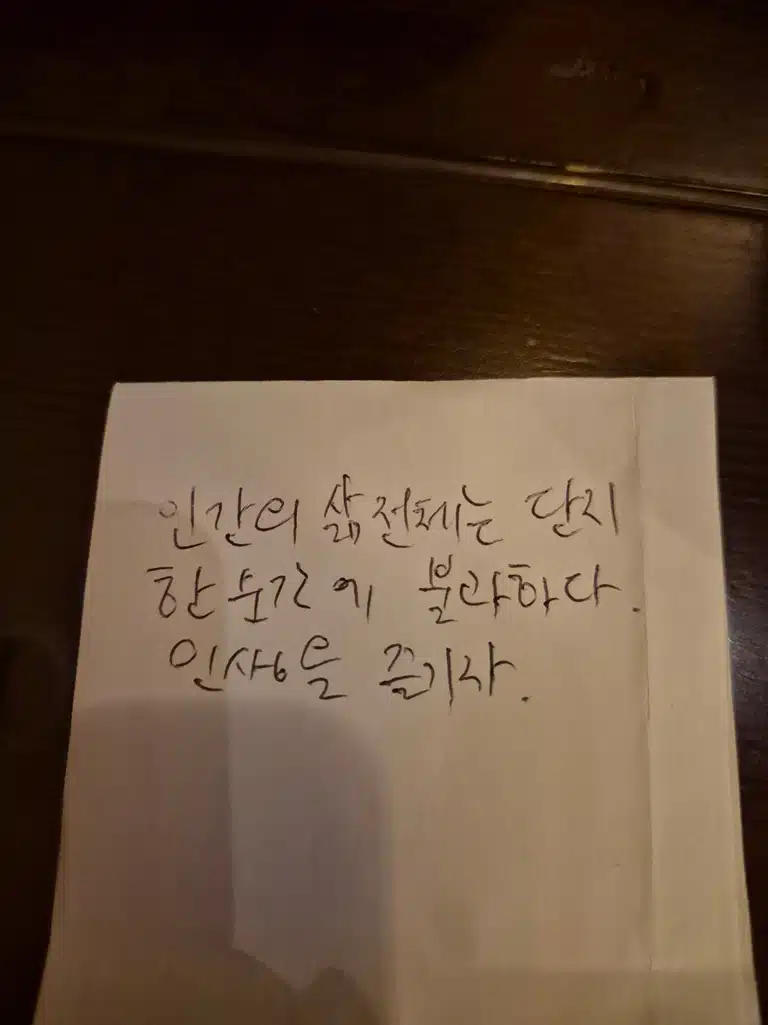 인간의 삶 전체는 단지
한 순간에 불과하다.
인생을 즐기자.